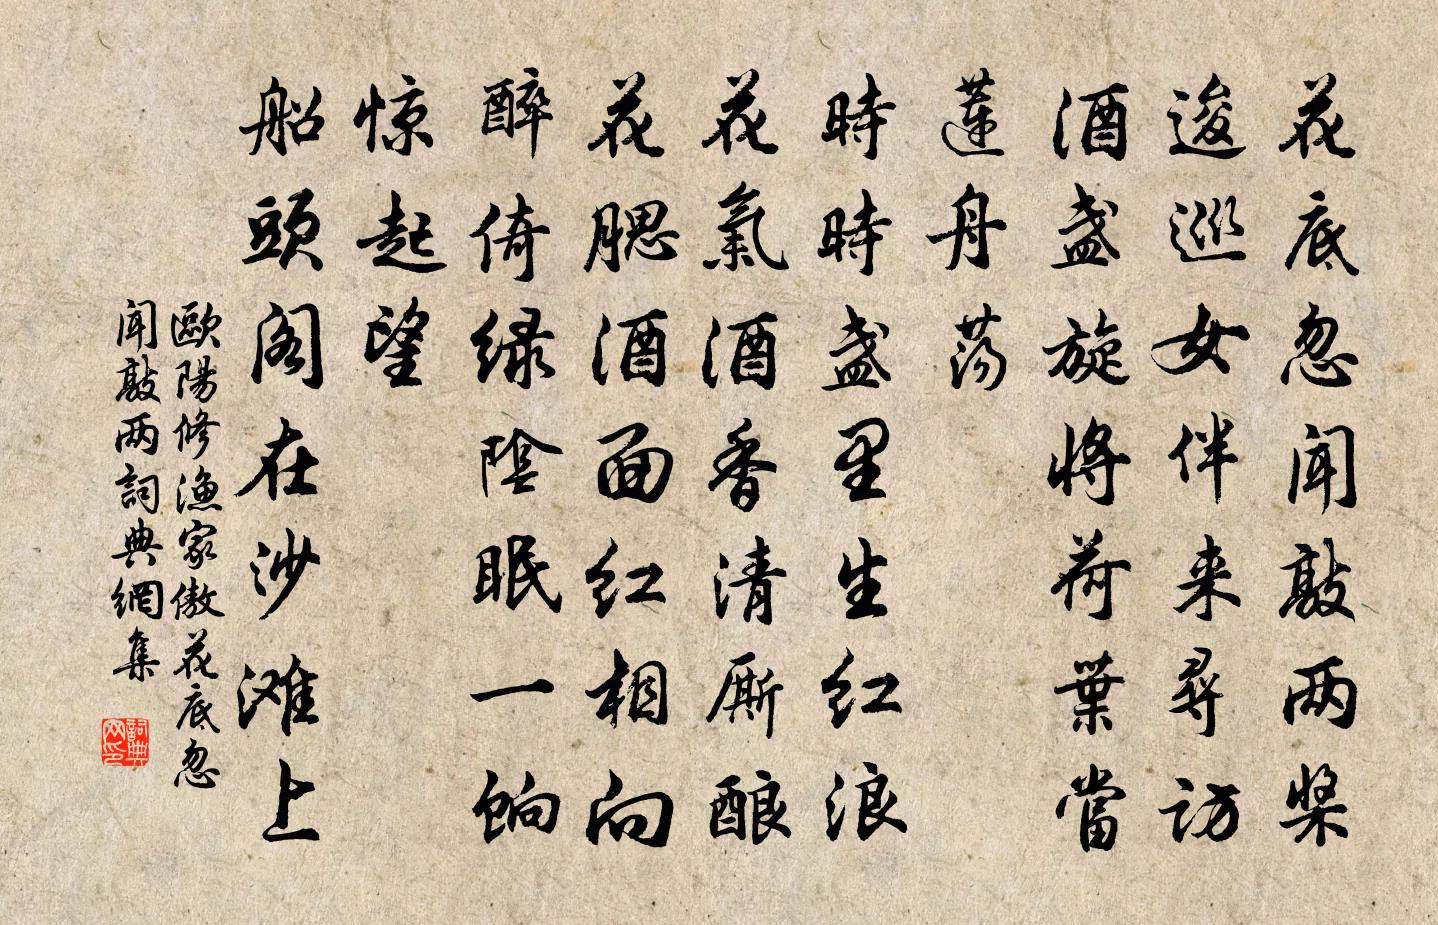 花底忽闻敲两桨
逡巡女伴来尋访
酒盏旋将荷葉當
莲舟荡
時時盏里生红浪
花氣酒香清厮酿
花腮酒面红相向
醉倚绿陰眠一饷
惊起望
船頭阁在沙滩上
歐陽修渔家傲花底忽
闻敲两詞典網集
詞典
网印